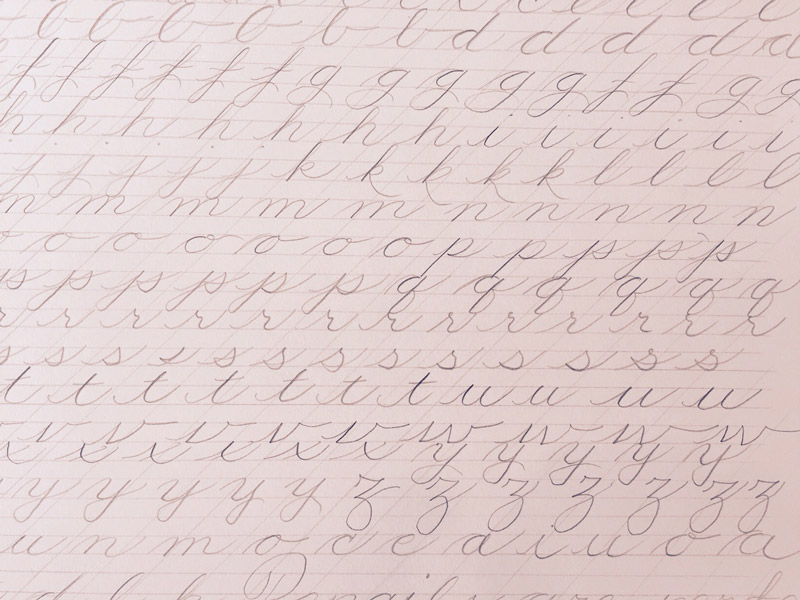 b b b b b b d d d d d d
f f f f f f g g g g g f f g g
h h h h h h h i i i i i i
j j j j j k k k k k l l l l
m m m m m m n n n n n
o o o o o o o p p p p p
p p p p p p p q q q q q q
r r r r r r r r r r r r r
s s s s s s s s s s s s
t t t t t t t t u u u u u
v v v v v v w w w w
x x x x x x x y y y y y
y y y y y y z z z z z z z
u n m o c e a i u o a
d l k Pencils are